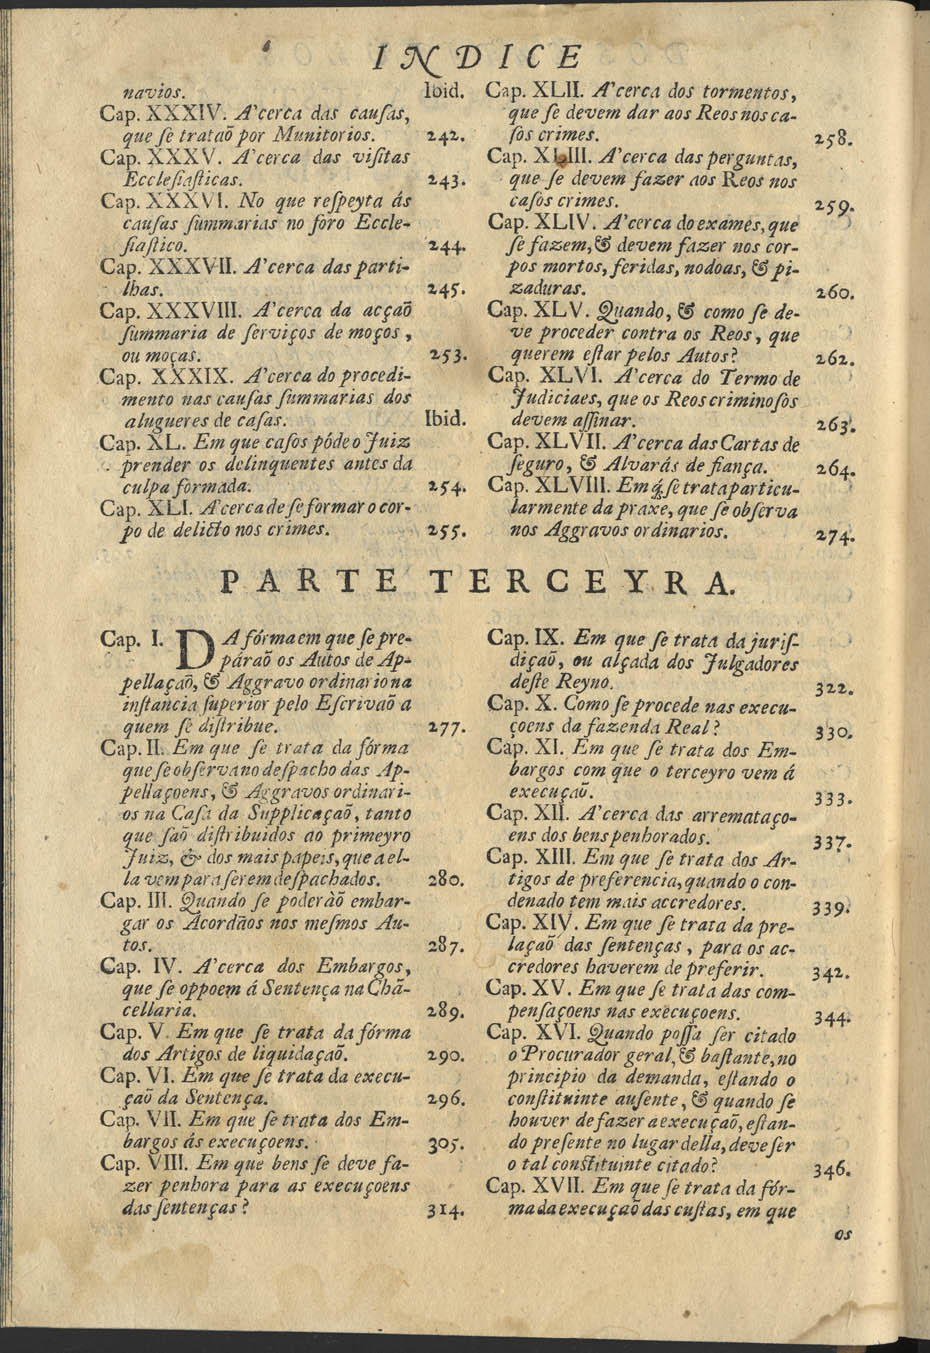 INDICE
navios. Ibid.
Cap. XXXIV. A'cerca das cauſas,
que ſe trataõ por Munitorios. 242.
Cap. XXXV. A'cerca das viſitas
Eccleſiaſticas. 243.
Cap. XXXVI. No que reſpeyta ás
cauſas ſummarias no foro Eccle-
ſiaſtico. 244.
Cap. XXXVII. A'cerca das parti-
lhas. 245.
Cap. XXXVIII. A'cerca da acçaõ
ſummaria de ſerviços de moços,
ou moças. 253.
Cap. XXXIX. A'cerca do procedi-
mento nas cauſas ſummarias dos
alugueres de caſas. Ibid.
Cap. XL. Em que caſos póde o Juiz
prender os delinquentes antes da
culpa formada. 254.
Cap. XLI. A'cerca de ſe formar o cor-
po de delicto nos crimes. 255.
Cap. XLII. A'cerca dos tormentos,
que ſe devem dar aos Reos nos ca-
ſos crimes. 258.
Cap. XLIII. A'cerca das perguntas,
que ſe devem fazer aos Reos nos
caſos crimes. 259.
Cap. XLIV. A'cerca do exames, que
ſe fazem, & devem fazer nos cor-
pos mortos, feridas, nodoas, & pi-
zaduras. 260.
Cap. XLV. Quando, & como ſe de-
ve proceder contra os Reos, que
querem eſtar pelos Autos? 262.
Cap. XLVI. A'cerca do Termo de
Judiciaes, que os Reos criminoſos
devem aſſinar. 263.
Cap. XLVII. A'cerca das Cartas de
ſeguro, & Alvarás de fiança. 264.
Cap. XLVIII. Em q̃ ſe trata particu-
larmente da praxe, que ſe obſerva
nos Aggravos ordinarios. 274.
PARTE TERCEYRA.
Cap. I. DA fórma em que ſe pre-
páraõ os Autos de Ap-
pellaçaõ, & Aggravo ordinario na
inſtancia ſuperior pelo Eſcrivaõ a
quem ſe diſtribue. 277.
Cap. II. Em que ſe trata da fórma
que ſe obſerva no deſpacho das Ap-
pellaçoens, & Aggravos ordinari-
os na Caſa da Supplicaçaõ, tanto
que ſaõ diſtribuidos ao primeyro
Juiz, & dos mais papeis, que a el-
la vem para ſerem deſpachados. 280.
Cap. III. Quando ſe poderàõ embar-
gar os Acordãos nos meſmos Au-
tos. 287.
Cap. IV. A'cerca dos Embargos,
que ſe oppoem á Sentença na Chã-
cellaria. 289.
Cap. V. Em que ſe trata da fórma
dos Artigos de liquidaçaõ. 290.
Cap. VI. Em que ſe trata da execu-
çaõ da Sentença. 296.
Cap. VII. Em que ſe trata dos Em-
bargos ás execuçoens. 305.
Cap. VIII. Em que bens ſe deve fa-
zer penhora para as execuçoens
das ſentenças? 314.
Cap. IX. Em que ſe trata da juriſ-
diçaõ, ou alçada dos Julgadores
deſte Reyno. 322.
Cap. X. Como ſe procede nas execu-
çoens da fazenda Real? 330.
Cap. XI. Em que ſe trata dos Em-
bargos com que o terceyro vem á
execuçaõ. 333.
Cap. XII. A'cerca das arremataço-
ens dos bens penhorados. 337.
Cap. XIII. Em que ſe trata dos Ar-
tigos de preferencia, quando o con-
denado tem mais accredores. 339.
Cap. XIV. Em que ſe trata da pre-
laçaõ das ſentenças, para os ac-
credores haverem de preferir. 342.
Cap. XV. Em que ſe trata das com-
penſaçoens nas execuçoens. 344.
Cap. XVI. Quando poſſa ſer citado
o Procurador geral, & baſtante, no
principio da demanda, eſtando o
conſtituinte auſente, & quando ſe
houver de fazer a execuçaõ, eſtan-
do preſente no lugar della, deve ſer
o tal conſtituinte citado? 346.
Cap. XVII. Em que ſe trata da fór-
ma da execuçaõ das cuſtas, em que
os